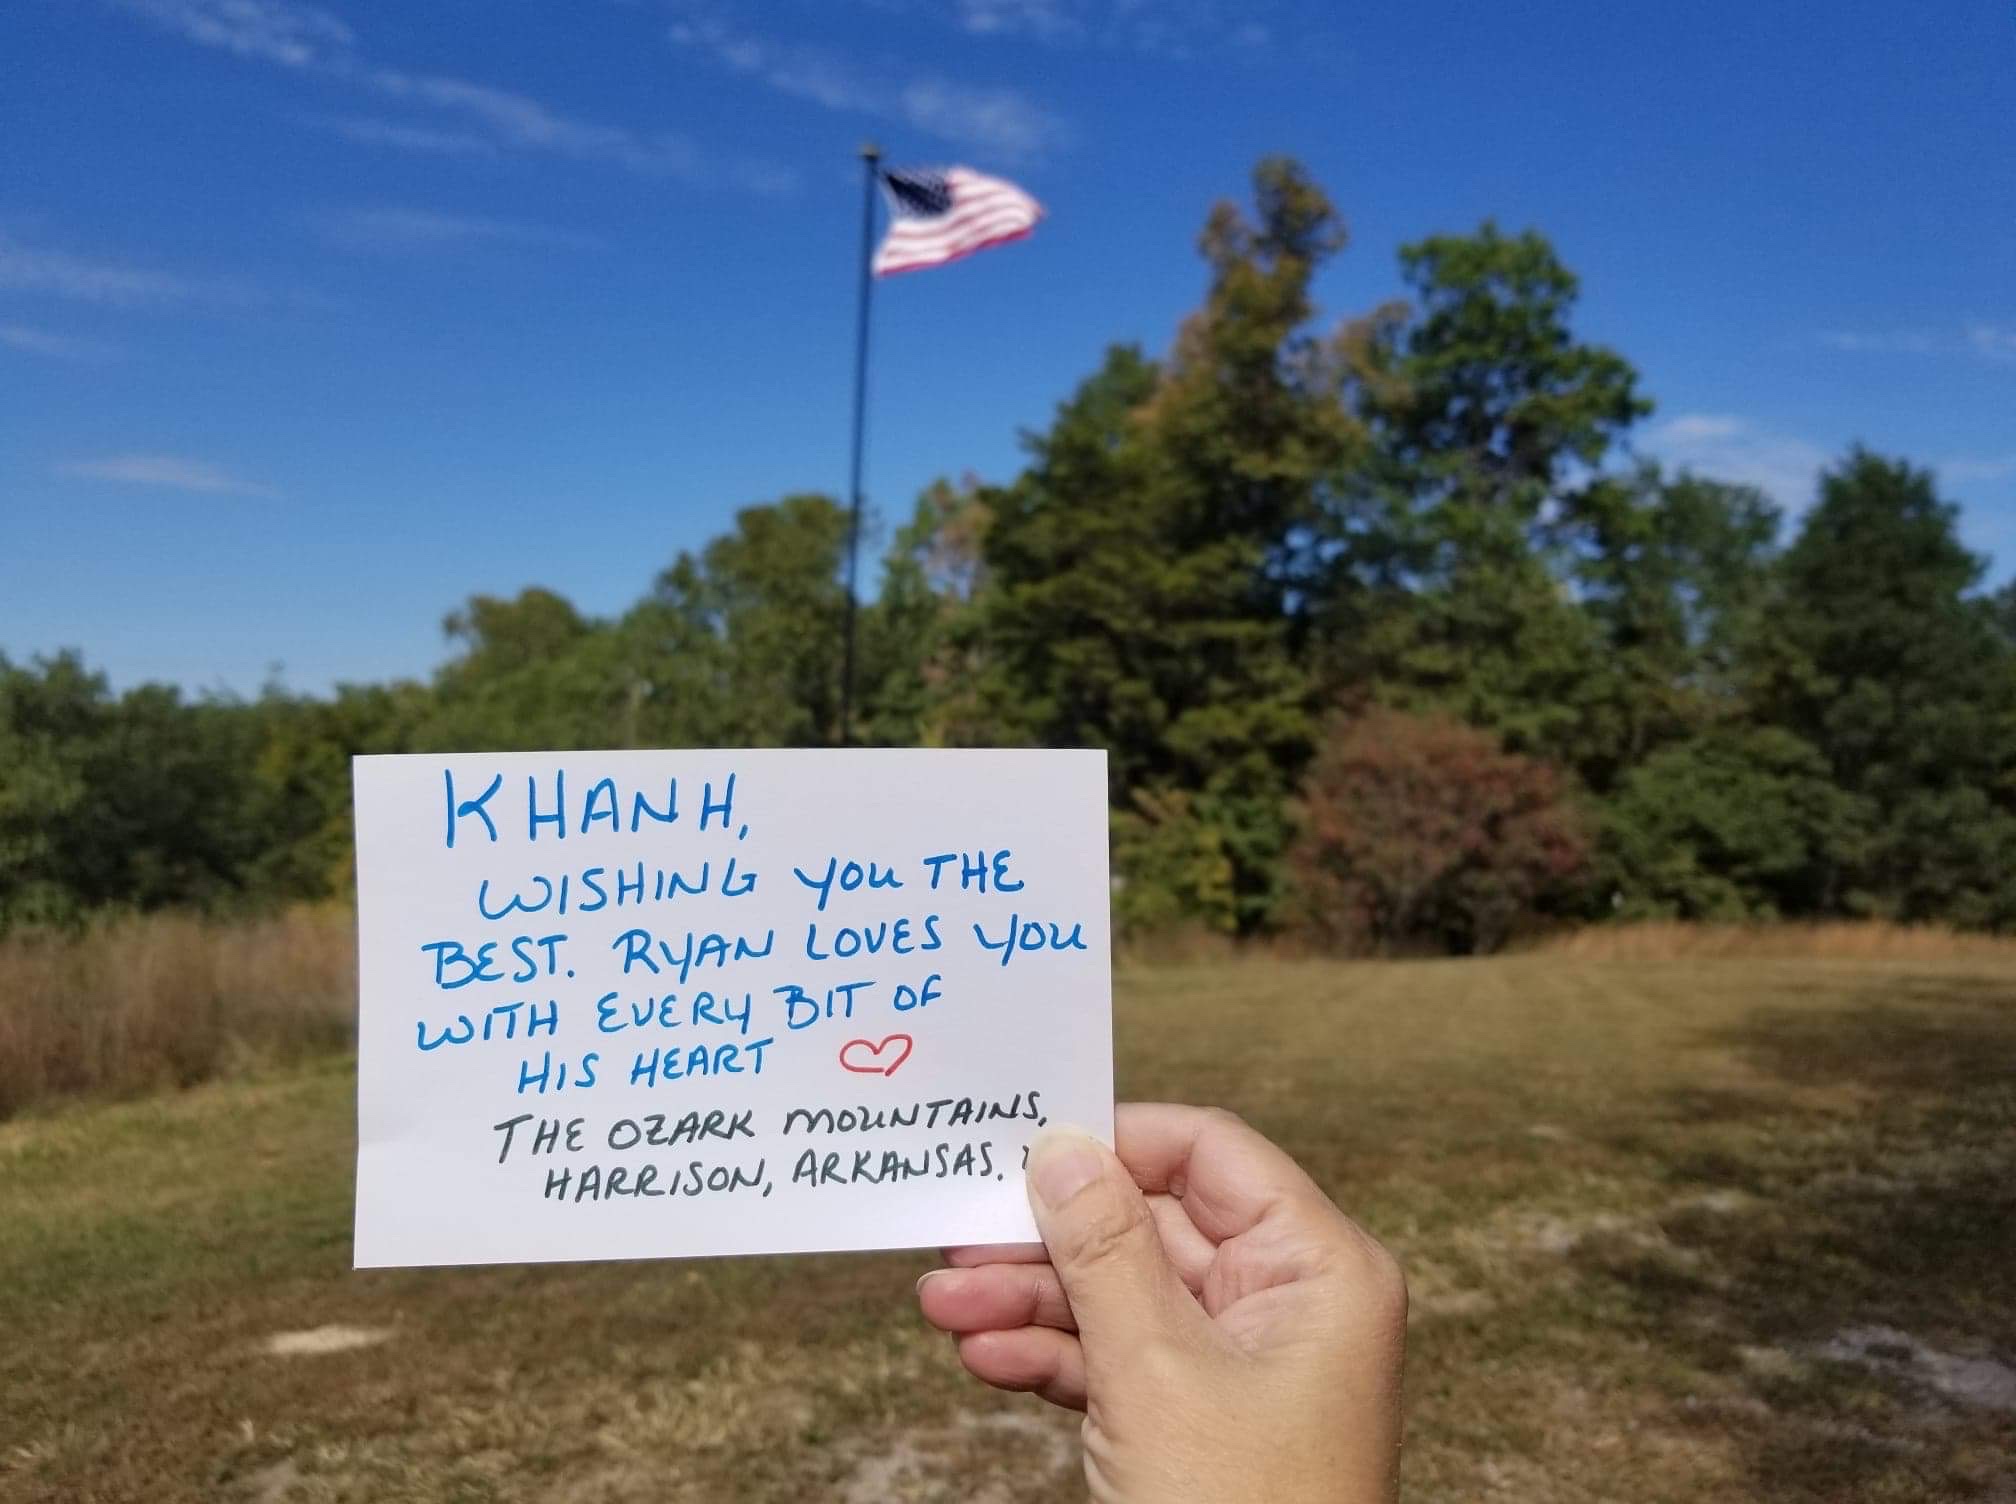 KHANH,
WISHING YOU THE
BEST. RYAN LOVES YOU
WITH EVERY BIT OF
HIS HEART
THE OZARK MOUNTAINS,
HARRISON, ARKANSAS.